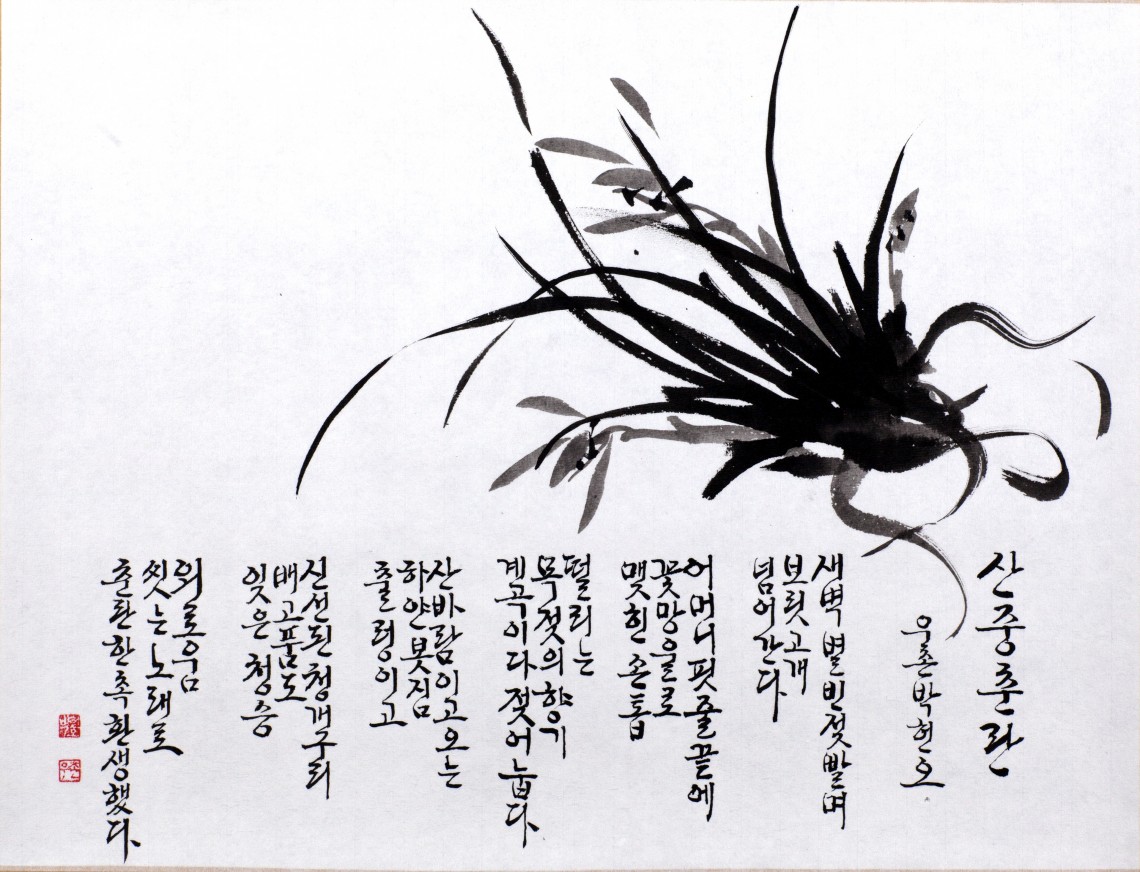 산중춘란
우촌 박현호
새벽 별 빈 젖 빨며
보릿고개
넘어간다
어머니 핏줄 끝에
꽃망울로
맺힌 손톱
떨리는
목젖의 향기
계곡이 다 젖어 눕다.
산바람 이고 오는
하얀 봇짐
출렁이고
신선 된 청개구리
배고픔도
잊은 청승
외로움
씻는 노래로
춘란 한 촉 환생했다.